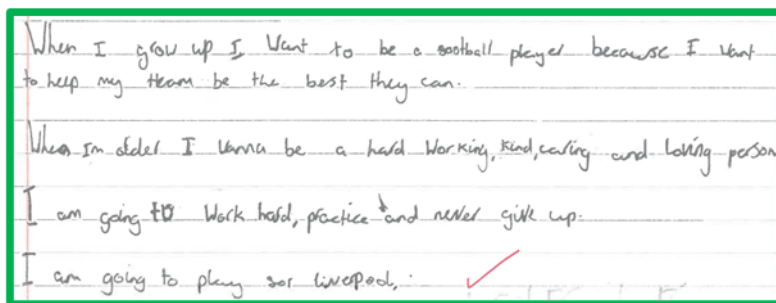 When I grow up I want to be a football player because I want
to help my team be the best they can.
When Im older I wanna be a hard working, kind, caring and loving person
I am going to work hard, practice and never give up.
I am going to play for liverpool.